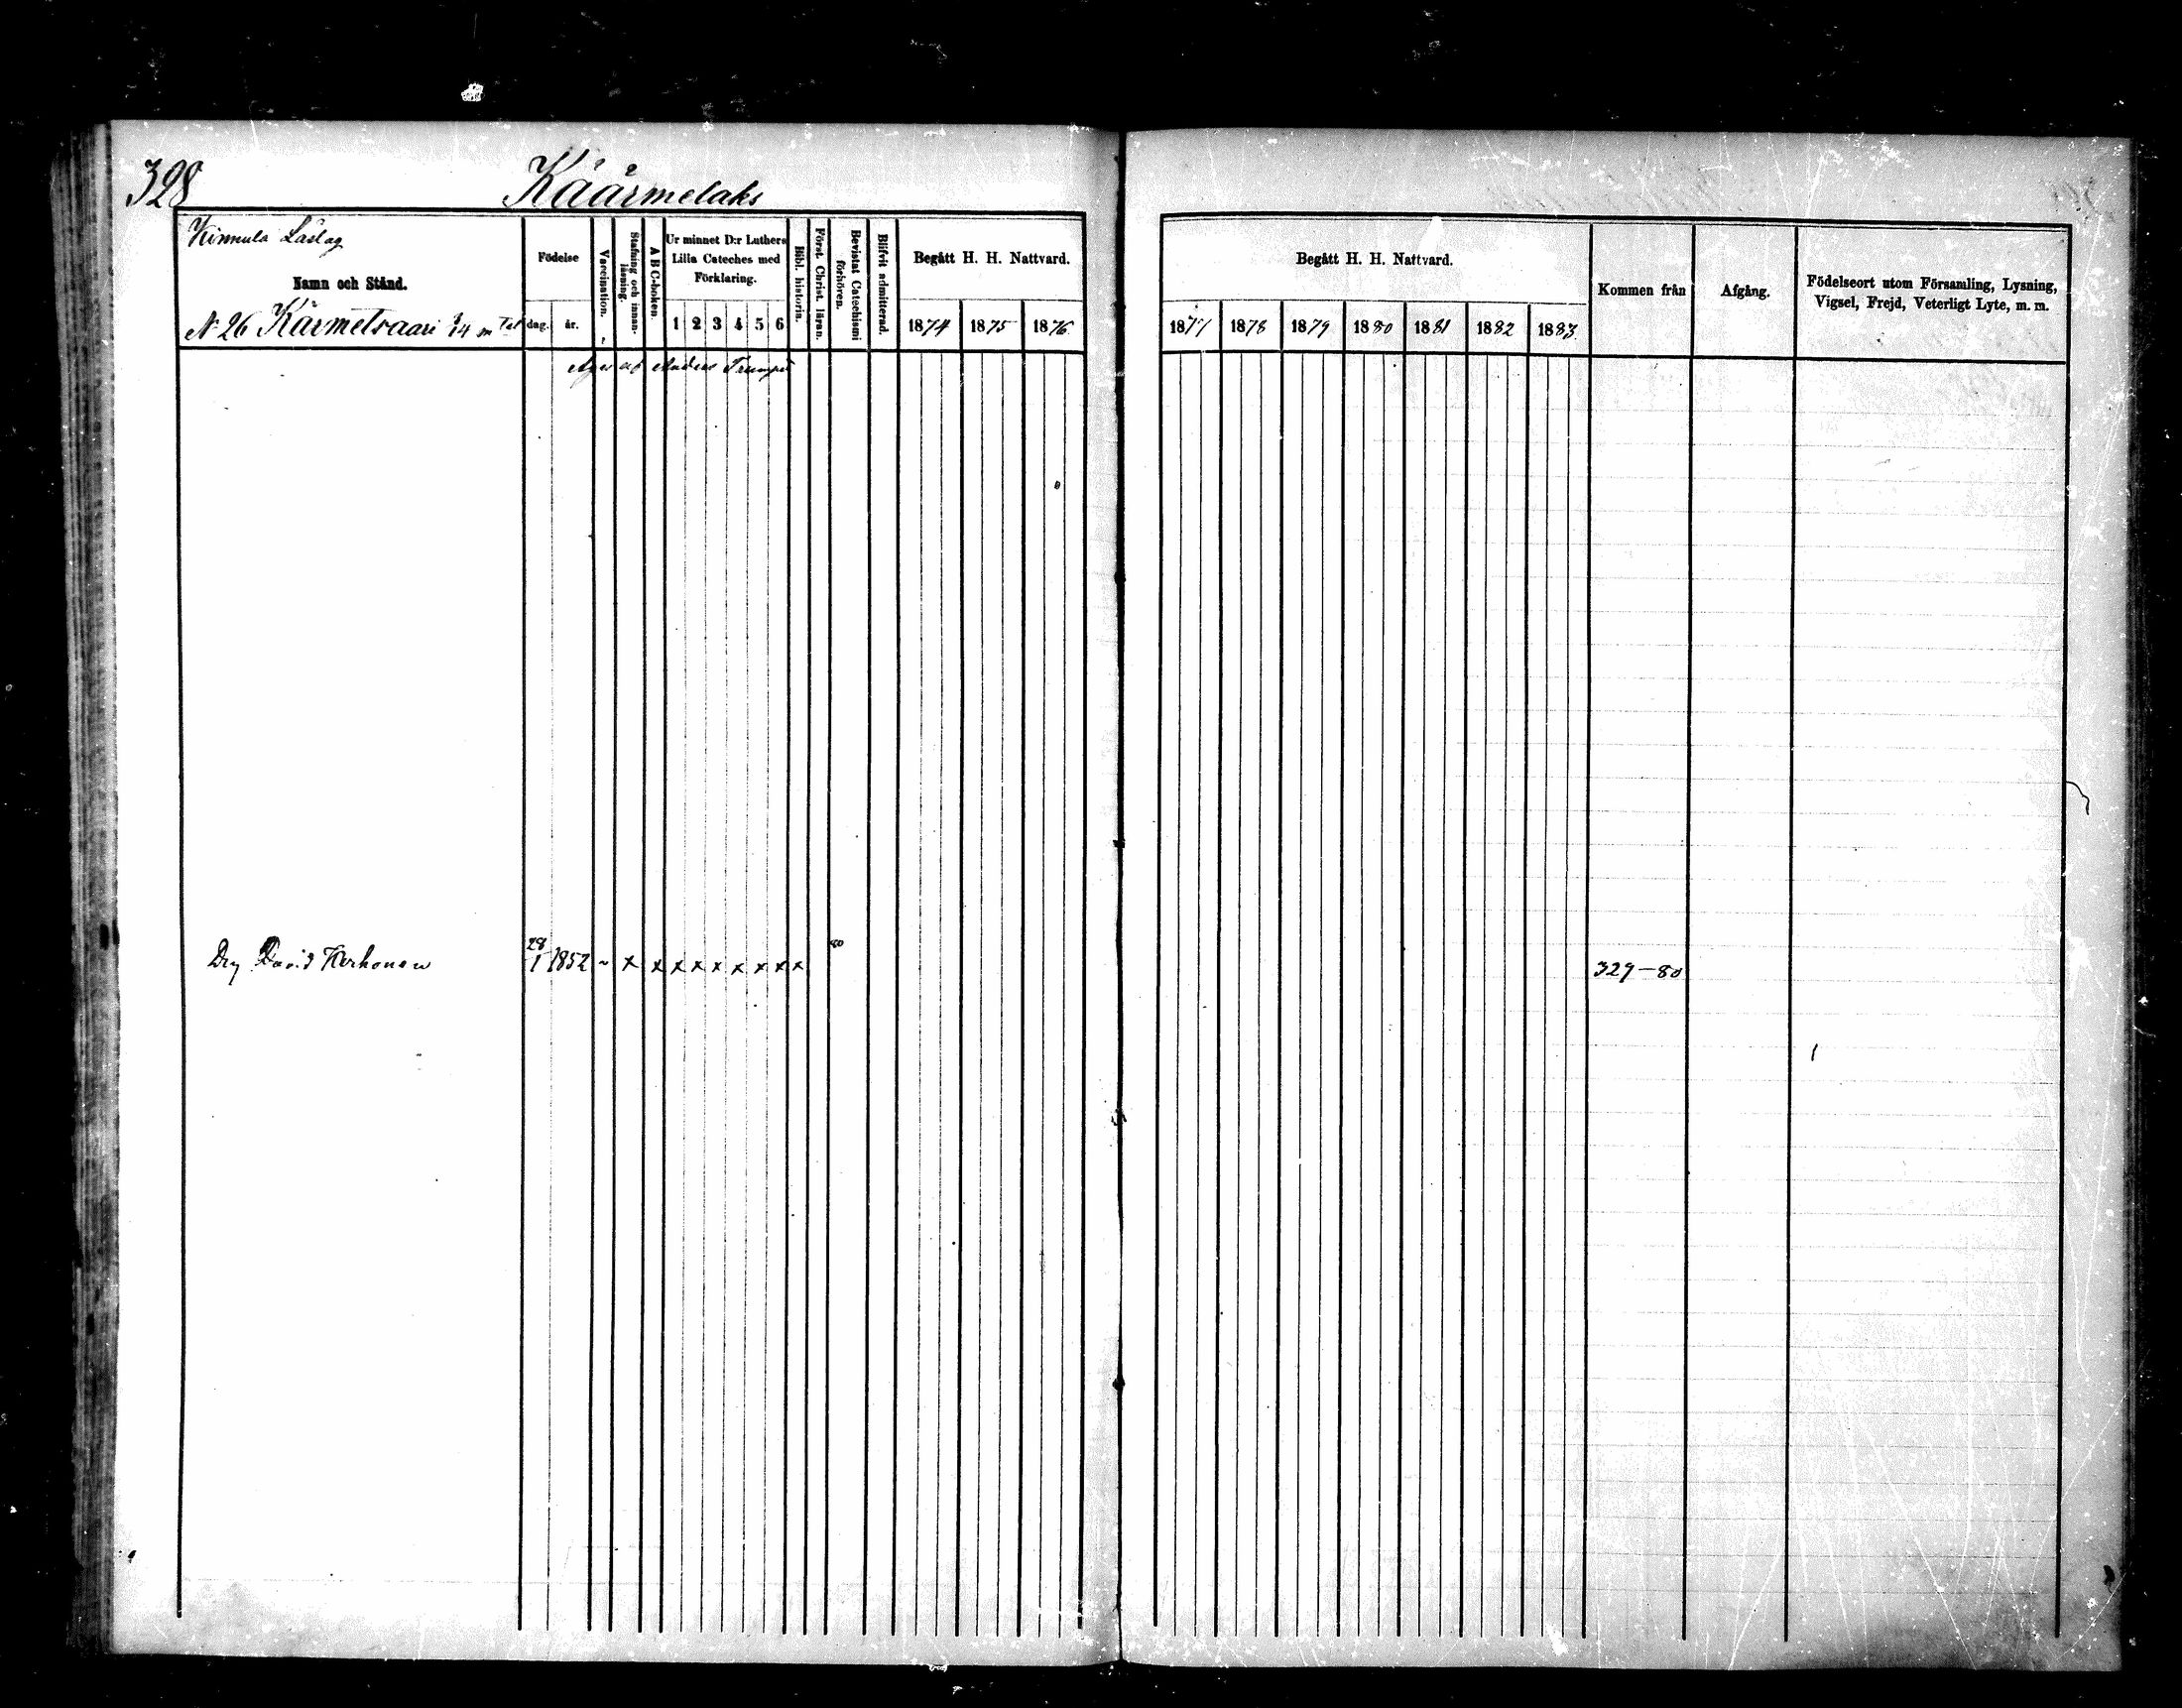 328 Käärmelaks
Kinnula Läslag
Namn och Stånd.
N 26 Kärmetvaari 1/4 m Tal
Födelse
dag. år.
Vaccination.
Stafning och innanläsning.
A B C-boken.
Ur minnet D:r Luthers
Lilla Cateches med
Förklaring.
1 2 3 4 5 6
Bibl. historia.
Först. Christ. läran.
Bevistat Catechismi förhören.
Blifvit admitterad.
Begått H. H. Nattvard.
1874 1875 1876
Begått H. H. Nattvard.
1877 1878 1879 1880 1881 1882 1883
Kommen från
Afgång.
Födelseort utom Församling, Lysning,
Vigsel, Frejd, Veterligt Lyte, m. m.
Äges af Anders
Drg David Kerkonen 28/1 1852 ~ x x x x x x x x x 80 329-80